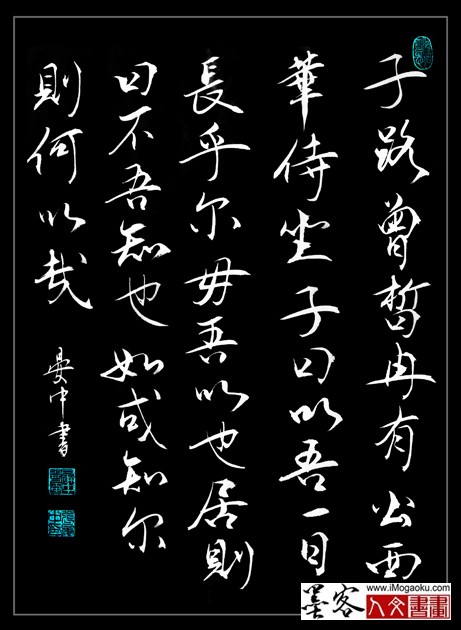 子路曾皙冉有公西
華侍坐子曰以吾一日
長乎尔毋吾以也居則
曰不吾知也如或知尔
則何以哉
中書
墨客
www.iMogaoku.com
人文書畫